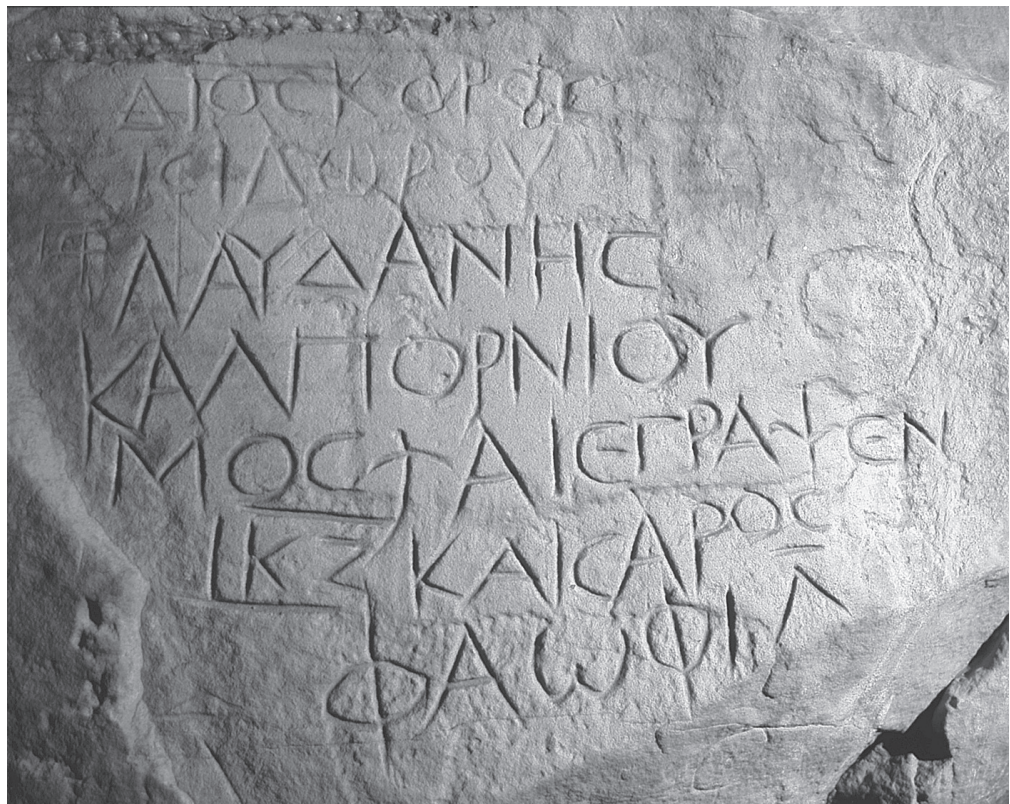 ΔΙΟϹΚΟΡΟϹ
ΙϹΙΔΩΡΟΥ
ΛΑΥΔΑΝΗϹ
ΚΑΛΠΟΡΝΙΟΥ
ΜΟϹΧΑΙΕΓΡΑΨΕΝ
LΚΖ ΚΑΙϹΑΡΟϹ
ΦΑΩΦΙ Λ̅